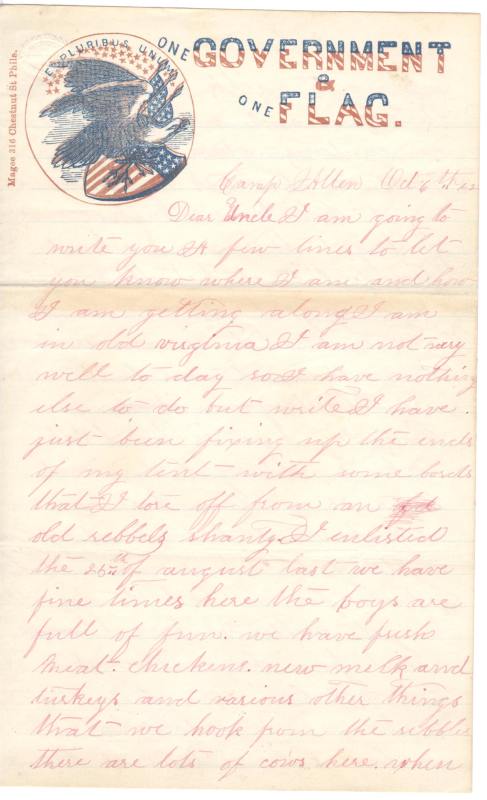 Magee 316 Chestnut St Phila.
E PLURIBUS UNUM
ONE GOVERNMENT
&
ONE FLAG.
Camp Oct 6th 62
Dear Uncle I am going to
write you A few lines to let
you know where I am and how
I am getting along I am
in old virginia I am not very
well to day so I have nothing
else to do but write I have.
just been fixing up the ends
of my tent with some bords
that I tore off from an
old rebbels shanty I enlisted
the 25th of august last we have
fine times here the boys are
full of fun. we have fresh
meat. chickens. new melk and
turkeys and various other things
that we hook from the rebbles
there are lots of cows here. when